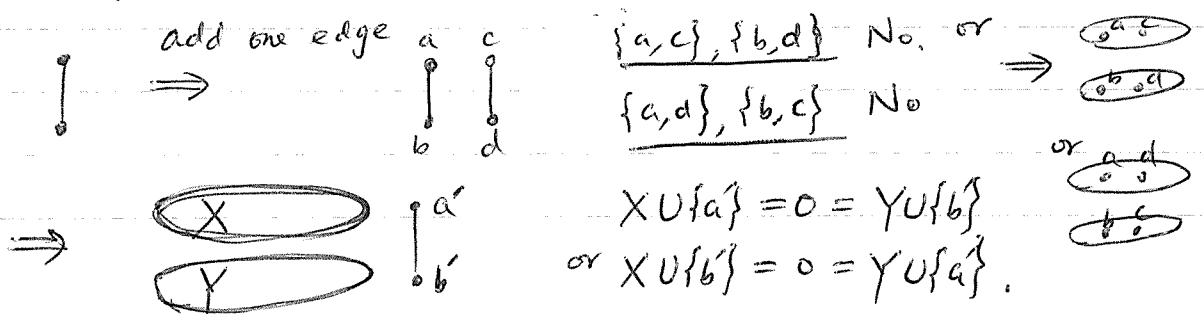 add one edge
⟹ a c {a,c}, {b,d} No. or ⟹ a c
b d {a,d}, {b,c} No b d
or a d
b c
⟹ X a′ X∪{a′} = 0 = Y∪{b′}
Y b′ or X∪{b′} = 0 = Y∪{a′}.